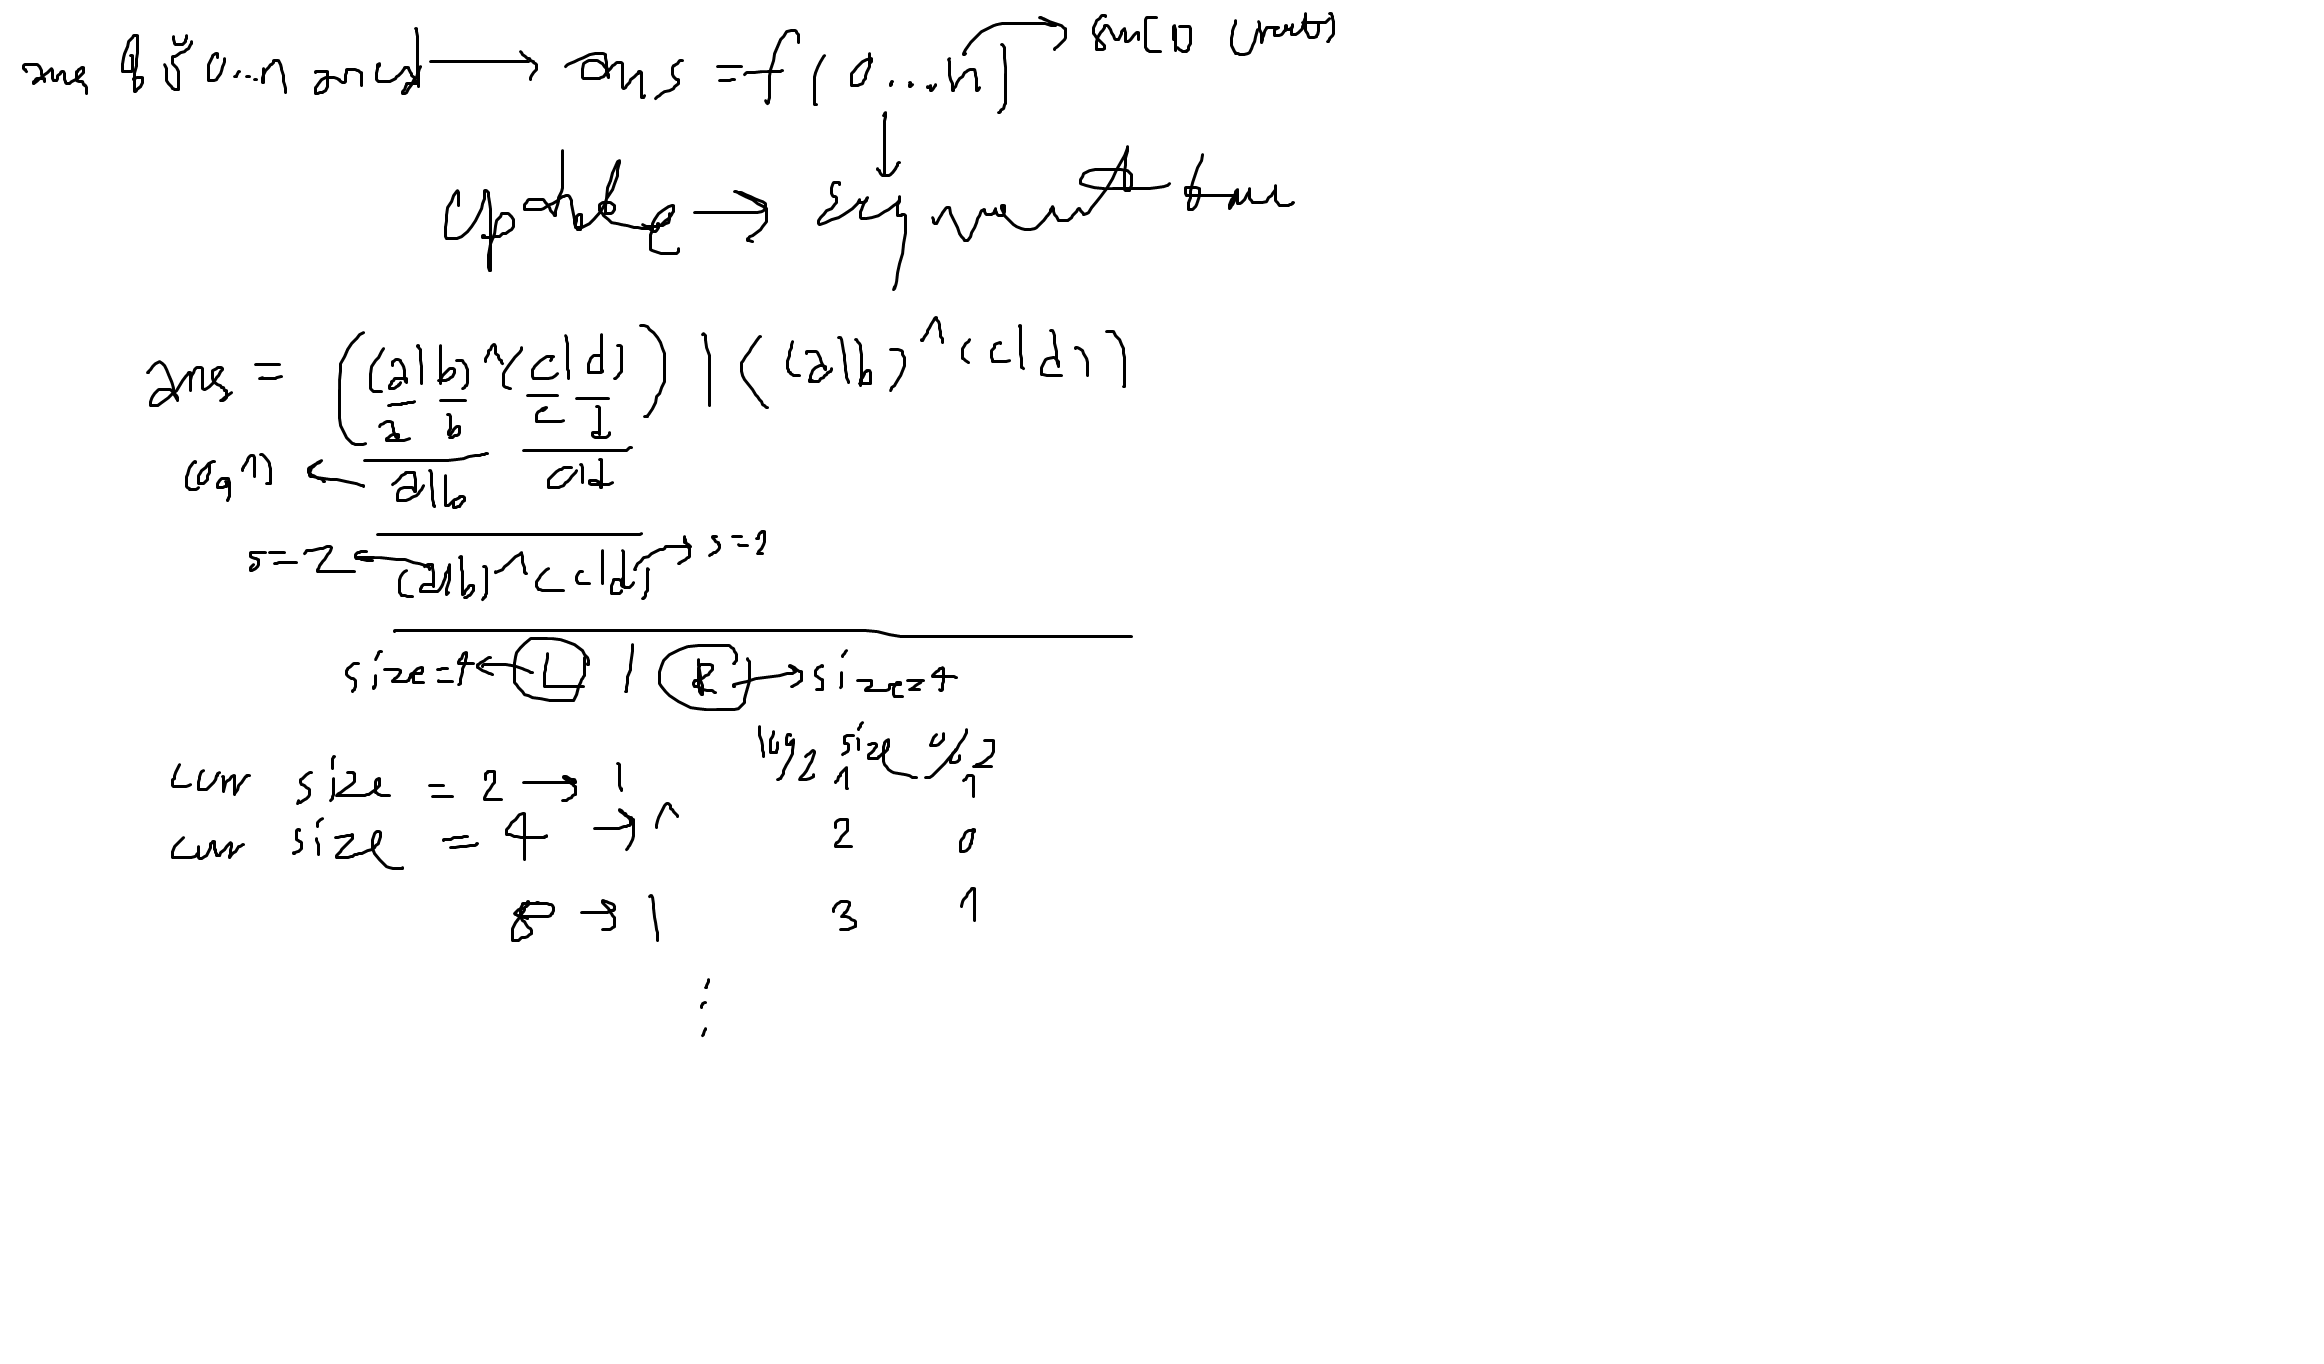 ans 0...n → ans = f(0...n) →
update → segment tree
ans = ((a|b)^(c|d)) | ((a|b)^(c|d))
a b c d
← a|b c|d
s=2 ← (a|b)^(c|d) → s=2
size=4 ← L | R → size=4
log2 size % 2
curr size = 2 → | 1 1
curr size = 4 → ^ 2 0
8 → | 3 1
⋮